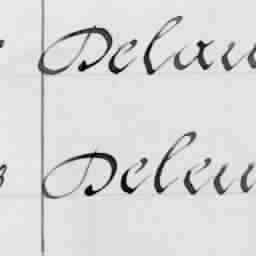 Delau
Deleu